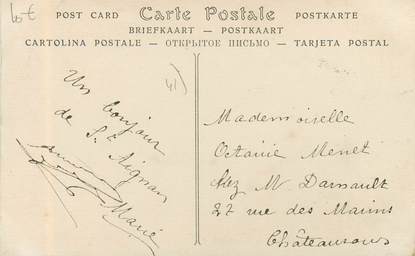 10€
POST CARD Carte Postale POSTKARTE
BRIEFKAART — POSTKAART
CARTOLINA POSTALE — ОТКРЫТОЕ ПИСЬМО — TARJETA POSTAL
41
Un bonjour
de St Aignan
Marie
Mademoiselle
Octavie Menet
chez Mr Darnault
27 rue des Marins
Châteauroux